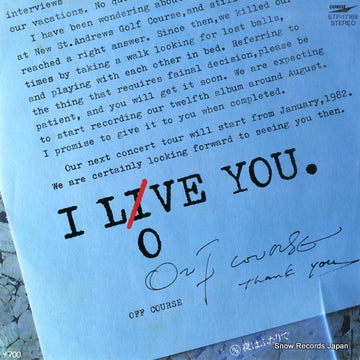 interviews
EXPRESS
ETP-17168
STEREO
our vacations. No
I have been wondering about
at New St.Andrews Golf Course, and still
reached a right answer. Since then, we killed our
times by taking a walk looking for lost balls,
and playing with each other in bed. Referring to
the thing that requires fainal decision, please be
patient, and you will get it soon. We are expecting
to start recording our twelfth album around August.
I promise to give it to you when completed.
Our next concert tour will start from January, 1982.
We are certainly looking forward to seeing you then.
I LIVE YOU.
O
OFF COURSE
thank you
OFF COURSE
夜はふたりで
¥700
Snow Records Japan
http://snowrecords.jp/